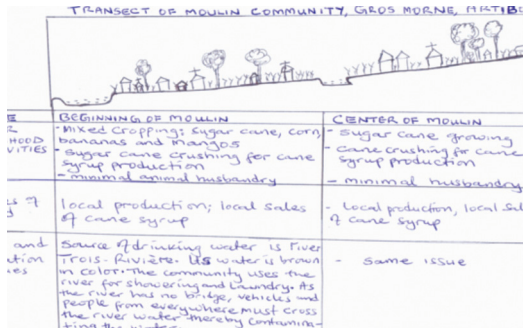 TRANSECT OF MOULIN COMMUNITY, GROS MORNE, ARTIB
E
BEGINNING OF MOULIN
CENTER OF MOULIN
R
HOOD
VITIES
- Mixed cropping: sugar cane, corn,
bananas and mangos
- sugar cane crushing for cane
syrup production
- minimal animal husbandry
- sugar cane growing
- cane crushing for cane
syrup production
- minimal husbandry
s of
d
local production; local sales
of cane syrup
- local production, local sal
of cane syrup
and
ation
es
Source of drinking water is river
Trois-Rivière. Its water is brown
in color. The community uses the
river for showering and laundry. As
the river has no bridge, vehicles and
people from everywhere must cross
the river water thereby contamina-
ting the water
- Same issue